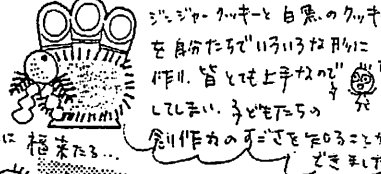 ジンジャークッキーと白黒のクッキ
を自分たちでいろいろな形に
作り、皆とても上手なので
してしまい、子どもたちの
創作力のすごさを知ることが
できまし